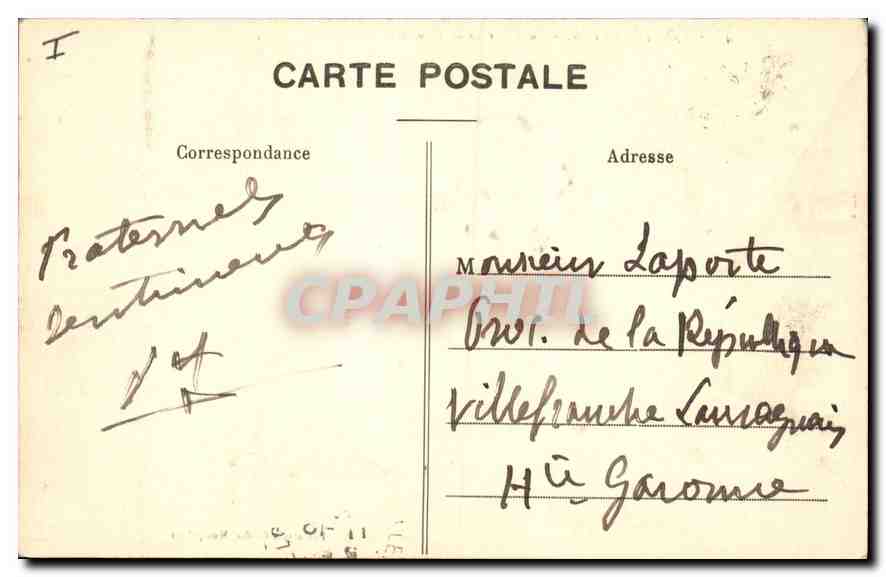 I
CARTE POSTALE
Correspondance
Adresse
Fraternels
sentiments
Monsieur Laporte
de la République
Villefranche Lauragais
Hte Garonne
CPAPHIL